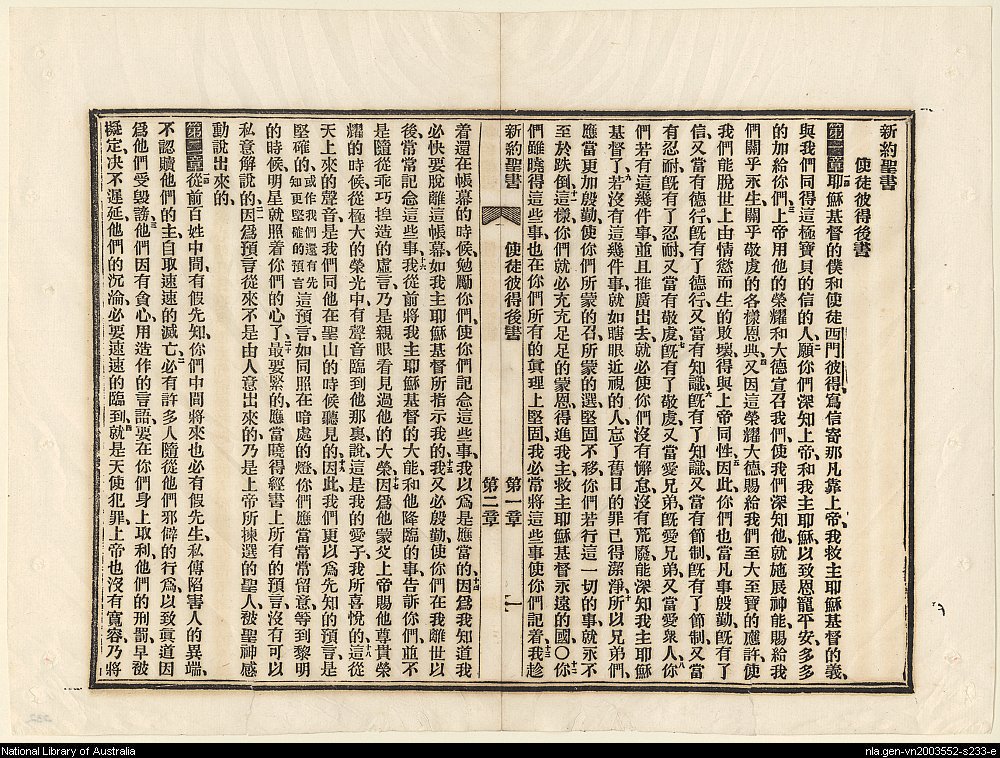 新約聖書
使徒彼得後書
第一章一耶穌基督的僕和使徒西門彼得、寫信寄那凡靠上帝、我救主耶穌基督的義、
與我們同得這極寶貝的信的人、二願你們深知上帝、和我主耶穌、以致恩寵平安、多多
的加給你們、三上帝用他的榮耀和大德宣召我們、使我們深知他、就施展神能、賜給我
們關乎永生、關乎敬虔的各樣恩典、四又因這榮耀大德、賜給我們至大至寶的應許、使
我們能脫世上由情慾而生的敗壞、得與上帝同性、五因此你們也當凡事殷勤、旣有了
信、又當有德行、旣有了德行、又當有知識、六旣有了知識、又當有節制、旣有了節制、又當
有忍耐、旣有了忍耐、又當有敬虔、七旣有了敬虔、又當愛兄弟、旣愛兄弟、又當愛衆人、八你
們若有這幾件事、並且推廣出去、就必使你們沒有懈怠、沒有荒廢、能深知我主耶穌
基督了、九若沒有這幾件事、就如瞎眼近視的人、忘了舊日的罪已得潔淨、十所以兄弟們、
應當更加殷勤、使你們所蒙的召、所蒙的選、堅固不移、你們若行這一切的事、就永不
至於跌倒、十一這樣、你們就必充充足足的蒙恩、得進我主救主耶穌基督永遠的國、〇十二你
們雖曉得這些事、也在你們所有的眞理上堅固、我必常將這些事使你們記着、十三我趁
新約聖書 使徒彼得後書 第一章 第二章 一
着還在帳幕的時候、勉勵你們、使你們記念這些事、我以爲是應當的、十四因爲我知道我
必快要脫離這帳幕、如我主耶穌基督所指示我的、十五我又必殷勤、使你們在我離世以
後、常常記念這些事、十六我從前將我主耶穌基督的大能、和他降臨的事告訴你們、並不
是隨從乖巧揑造的虛言、乃是親眼看見過他的大榮、十七因爲他蒙父上帝賜他尊貴榮
耀的時候、從極大的榮光中、有聲音臨到他那裏、說、這是我的愛子、我所喜悅的、十八這從
天上來的聲音、是我們同他在聖山的時候聽見的、十九因此我們更以爲先知的預言是
堅確的、或作我們還有先知更堅確的預言這預言、如同照在暗處的燈、你們應當常常留意、等到黎明
的時候、明星就照着你們的心了、二十最要緊的、應當曉得經書上所有的預言、沒有可以
私意解說的、二一因爲預言從來不是由人意出來的、乃是上帝所揀選的聖人、被聖神感
動說出來的、
第二章一從前百姓中間、有假先知、你們中間將來也必有假先生、私傳陷害人的異端、
不認贖他們的主、自取速速的滅亡、二必有許多人隨從他們邪僻的行爲、以致眞道因
爲他們受毀謗、三他們因有貪心、用造作的言語、要在你們身上取利、他們的刑罰、早被
擬定、决不遲延、他們的沉淪、必要速速的臨到、四就是天使犯罪、上帝也沒有寬容、乃將
National Library of Australia
nla.gen-vn2003552-s233-e